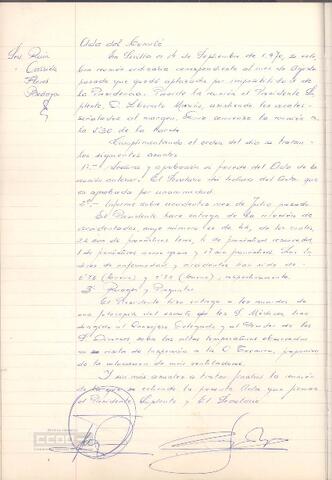 Acta del Comité
Srs. Ruiz
Cassida
Flores
Bedoya
En Sevilla a 14 de Septiembre de 1.970, se celebra
reunión ordinaria correspondiente al mes de Agosto
pasado que quedó aplazada por imposibilidad de
la Presidencia. Preside la reunión el Presidente Su-
plente, D. Liborato asistiendo los vocales
señalados al margen. Dando comienzo la reunión a
las 5,30 de la tarde.
Cumplimentando el orden del día se tratan
los siguientes asuntos:
1º.- Lectura y aprobación si procede del Acta de la
reunión anterior. El Secretario da lectura del Acta que
es aprobada por unanimidad.
2º.- Informe sobre accidentes mes de Julio pasado.
El Presidente hace entrega de la relación de
accidentados, cuyo número es de 44, de los cuales
26 son de pronóstico leve, de pronóstico reservado,
1 de pronóstico menos grave y 17 sin pronóstico. Los ín-
dices de enfermedad y accidentes han sido de
y respectivamente.
3º Ruegos y Preguntas
El Presidente hace entrega a los reunidos de
una fotocopia del escrito que los S. Médicos han
dirigido al Consejero Delegado y al Director de los
S. Diversos sobre las altas temperaturas observadas
en su visita de Inspección a la C. Térmica,
de la más ventiladores.
Y sin más asuntos a tratar finaliza la reunión
de la que se extiende la presente Acta que firman
el Presidente Suplente y El Secretario
CCOO